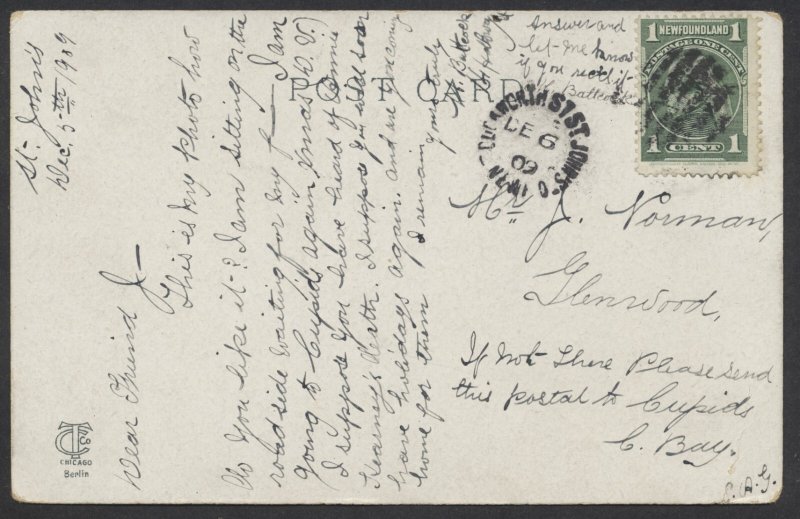 St. John's
Dec. 5th/1909
Dear Friend J—
This is my photo how
do you like it? I am sitting on the
roadside waiting for my f——. I am
going to Cupids again Xmas (D.V.)
I suppose you have heard of
Kearney's death. I suppose you will soon
have holidays again. and are you coming
home for them I remain
yours truly
Wm. Battcock
Answer and
let me know
if you rec'd it
Battcock
POST CARD
NEWFOUNDLAND
POSTAGE ONE CENT
1 1
CENT
ST. JOHN'S
DE 6
09
Mr J. Norman,
Glenwood.
If Not There Please send
this postal to Cupids
C. Bay.
C.A.G.
CHICAGO
Berlin